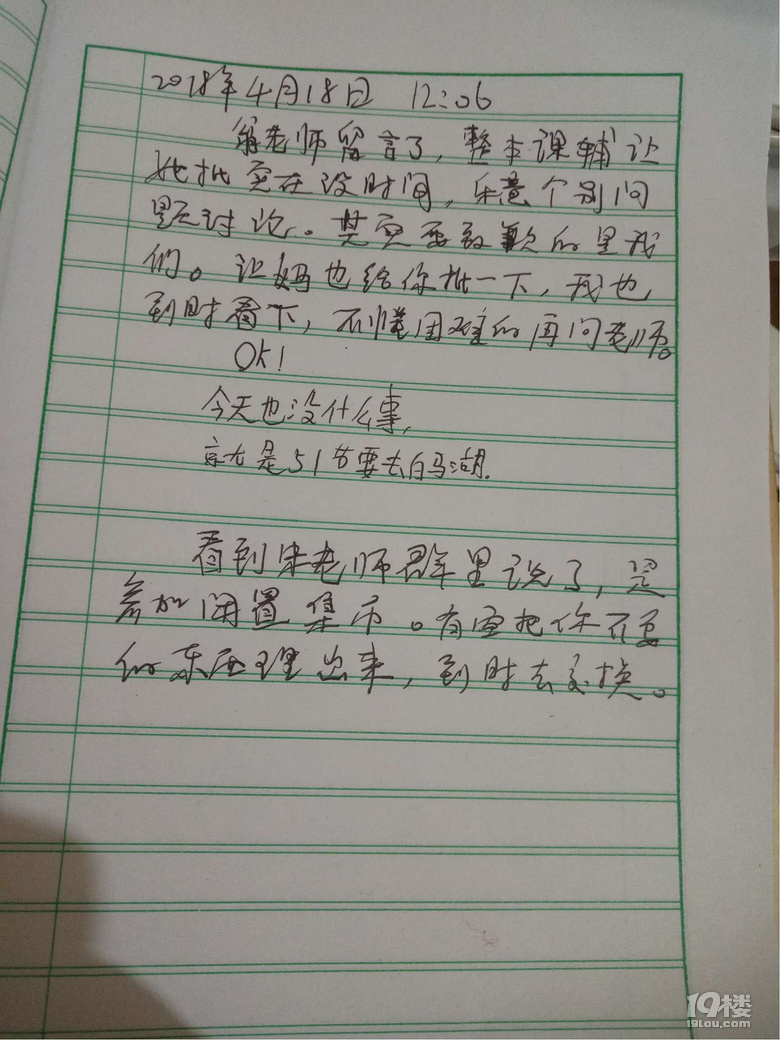 2018年4月18日 12:06
翁老师留言了，整本课辅让
她批实在没时间，乐意个别问
题讨论。其实要致歉的是我
们。让妈也给你批一下，我也
到时看下，不懂困难的再问老师。
OK!
今天也没什么事，
就是51节要去白马湖.
看到朱老师群里说了，是
参加闲置集市。有空把你不要
的东西理出来，到时去交换。
19楼
19lou.com